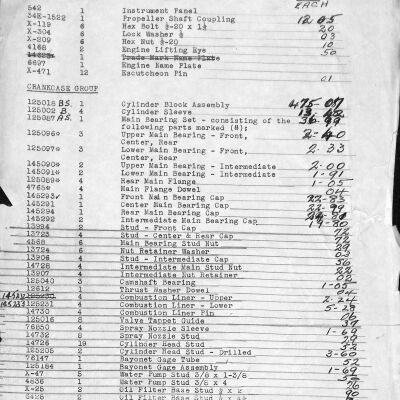 EACH
542 1 Instrument Panel
34E-1522 1 Propeller Shaft Coupling 12 05
X-119 6 Hex Bolt 20
X-304 6 Lock Washer 03
X-209 6 Hex Nut 10
4168 2 Engine Lifting Eye 50
1 Trade Mark Name Plate
6697 1 Engine Name Plate
X-471 12 Escutcheon Pin 01
CRANKCASE GROUP
125018 BS. 1 Cylinder Block Assembly 475-07
125002 B 4 Cylinder Sleeve
125087 AS. 1 Main Bearing Set - consisting of the
following parts marked (@):
125096 3 Upper Main Bearing - Front, 2-40
Center, Rear
125097 3 Lower Main Bearing - Front, 2-33
Center, Rear
145090 2 Upper Main Bearing - Intermediate 2-00
145091 2 Lower Main Bearing - Intermediate 1-91
125089 4 Rear Main Flange 1-05
4765 4 Main Flange Dowel 04
145293 1 Front Main Bearing Cap 22-83
145291 1 Center Main Bearing Cap
145294 1 Rear Main Bearing Cap
145292 2 Intermediate Main Bearing Cap 19-80
13994 2 Stud - Front Cap
13723 4 Stud - Center & Rear Cap
4568 6 Main Bearing Stud Nut
13724 6 Nut Retainer Washer
13906 4 Stud - Intermediate Cap
14728 4 Intermediate Main Stud Nut
13907 4 Intermediate Nut Retainer
125040 3 Camshaft Bearing 1-05
12612 1 Thrust Washer Dowel
4 Combustion Liner - Upper 2-24
145233 125231 4 Combustion Liner - Lower 5-28
14730 4 Combustion Liner Pin
125016 8 Valve Tappet Guide 37
76850 4 Spray Nozzle Sleeve 1-69
14732 8 Spray Nozzle Stud
14726 19 Cylinder Head Stud 52
125205 2 Cylinder Head Stud - Drilled 3-60
76147 1 Bayonet Gage Tube
125184 1 Bayonet Gage Assembly 1-69
X-47 5 Water Pump Stud 3/8 x 1-3/8
4836 1 Water Pump Stud 3/8 x 4
X-25 Oil Filter Base Stud
Oil Filter Base Stud